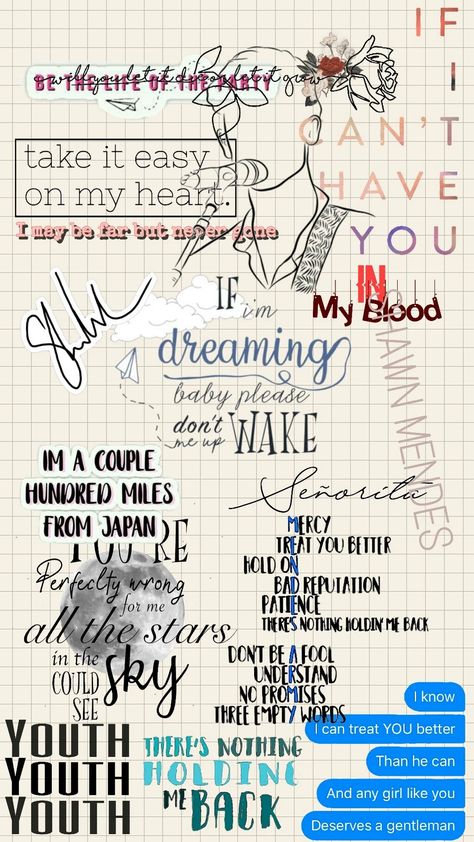 will you let it die or let it grow
BE THE LIFE OF THE PARTY
IF
I
CAN'T
HAVE
YOU
take it easy
on my heart.
I may be far but never gone
IN
My Blood
SHAWN MENDES
IF i'm
dreaming
baby please
don't WAKE
me up
IM A COUPLE
HUNDRED MILES
FROM JAPAN
Señorita
MERCY
TREAT YOU BETTER
HOLD ON
BAD REPUTATION
PATIENCE
THERE'S NOTHING HOLDIN' ME BACK
DON'T BE A FOOL
UNDERSTAND
NO PROMISES
THREE EMPTY WORDS
YOU'RE
Perfeclty wrong
for me
all the stars
in the
COULD SKY
SEE
YOUTH
YOUTH
YOUTH
THERE'S NOTHING
HOLDING
ME BACK
I know
I can treat YOU better
Than he can
And any girl like you
Deserves a gentleman